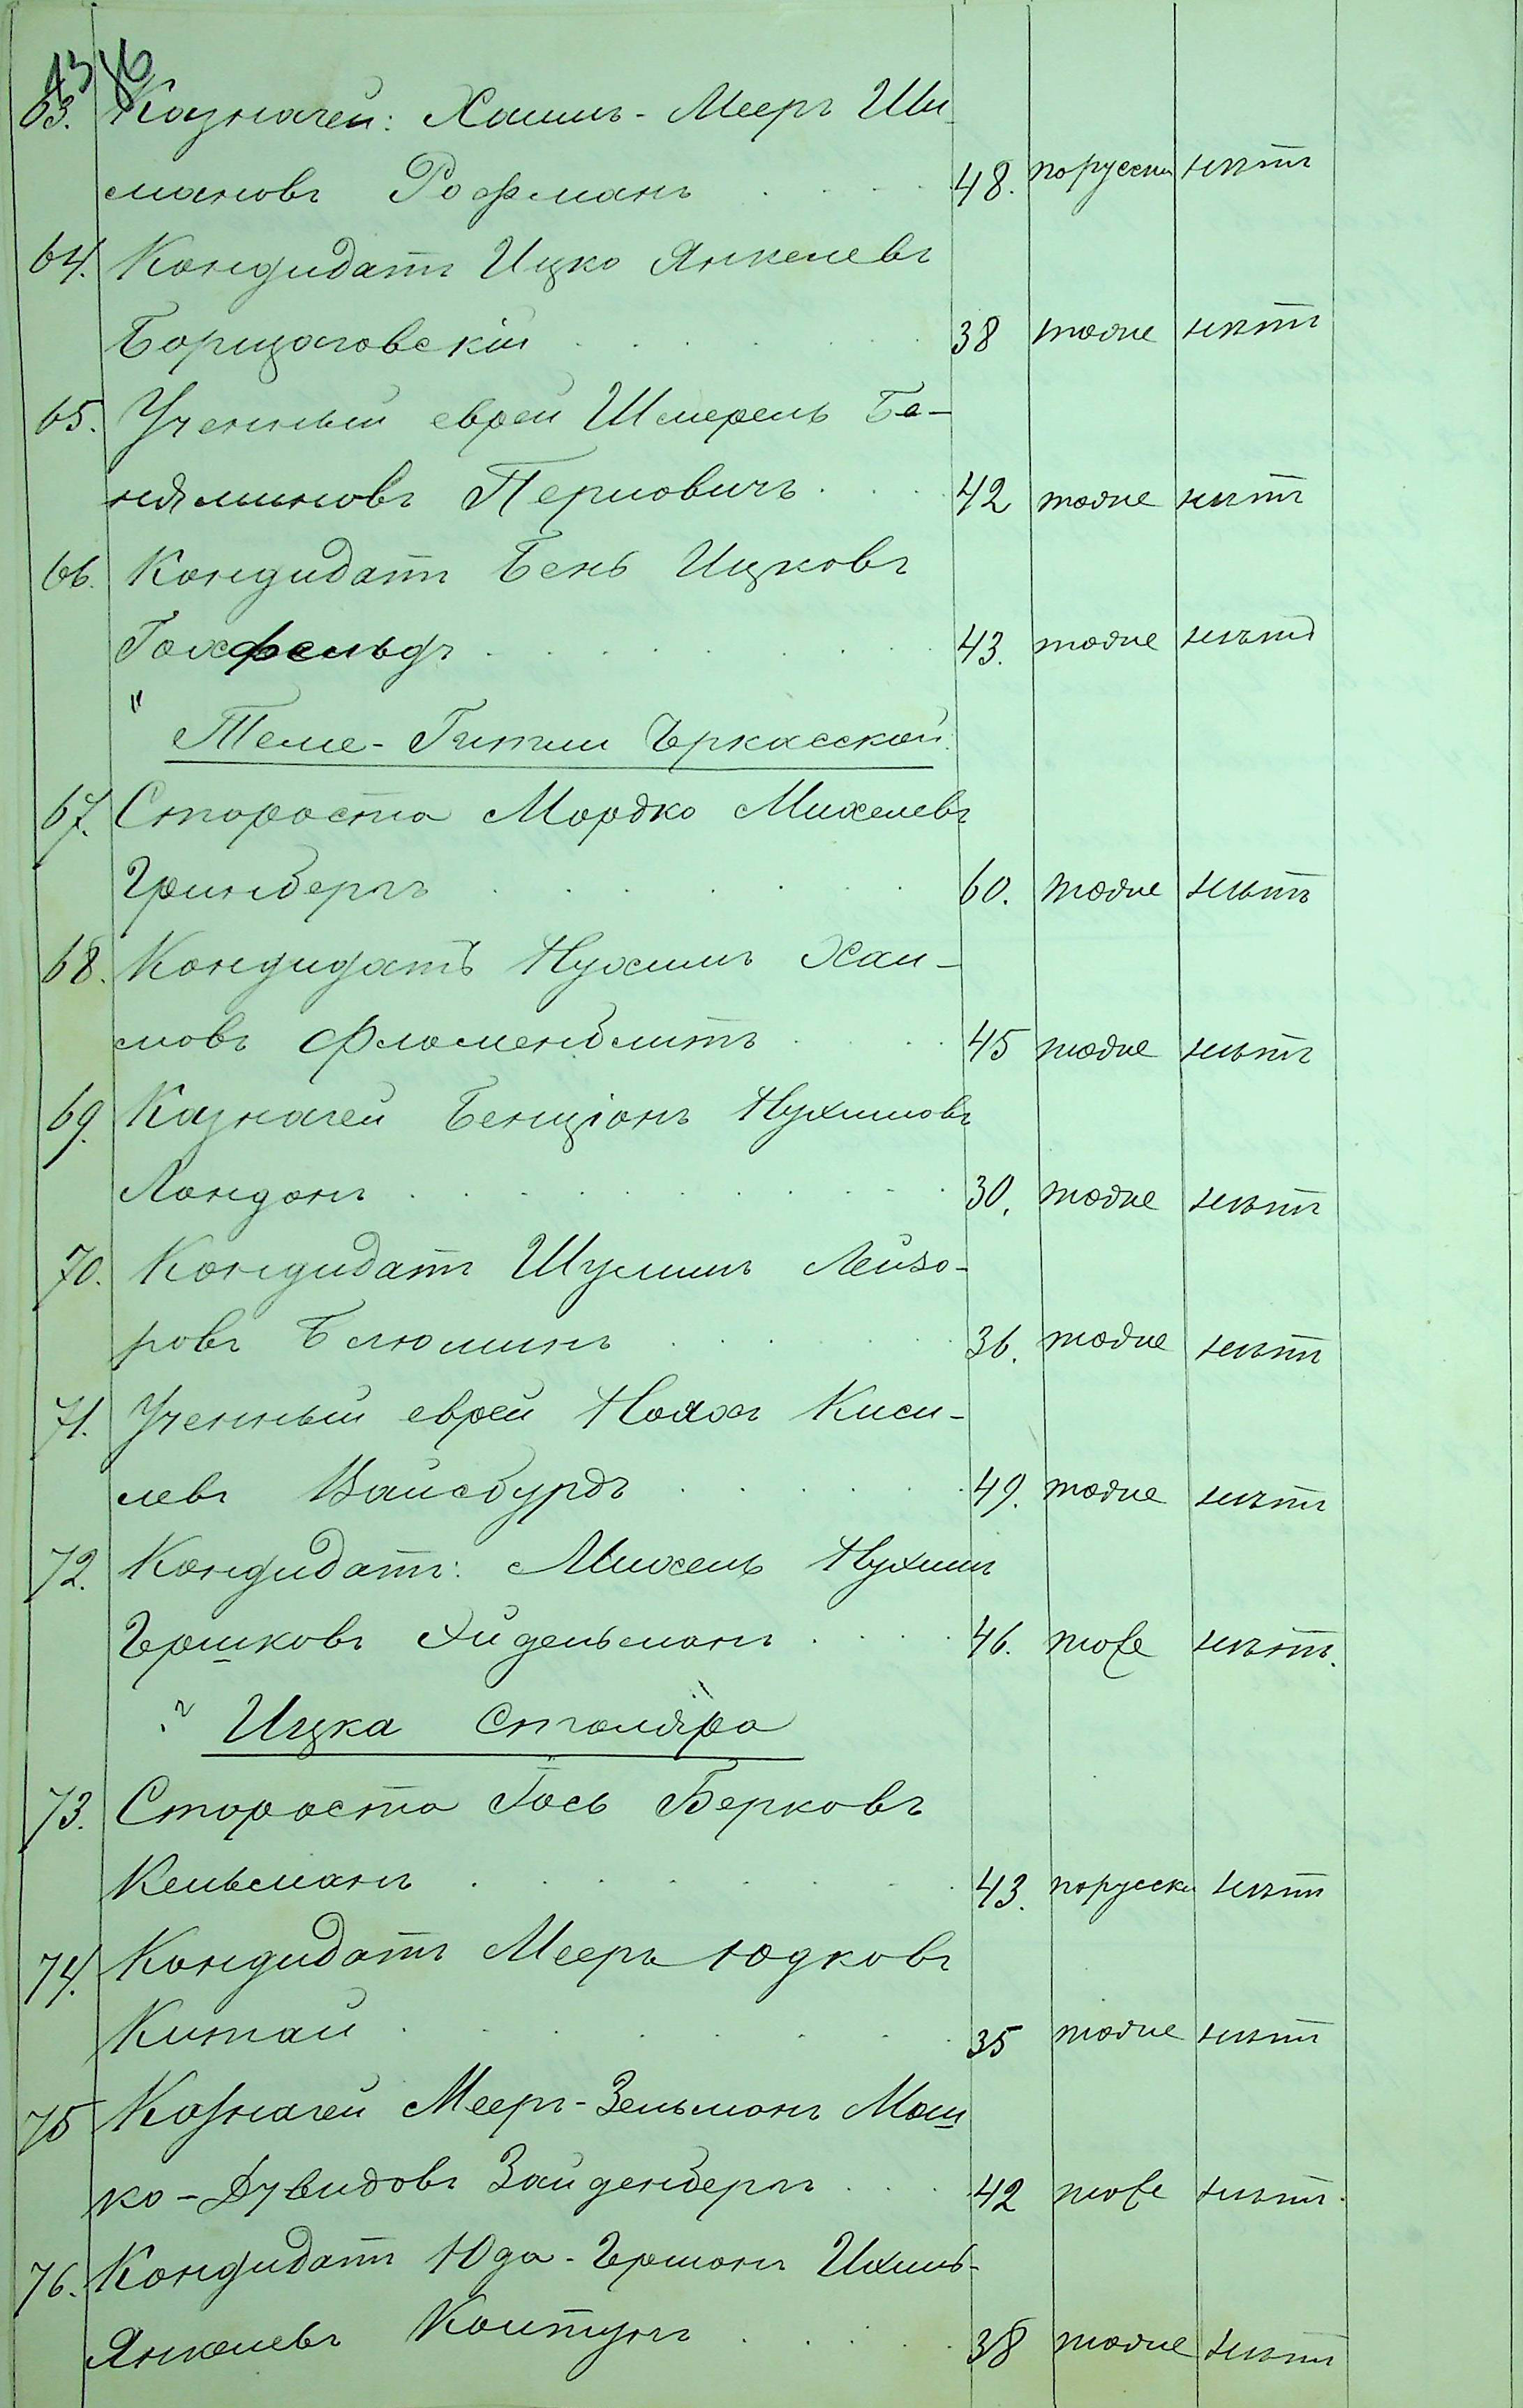 43 46
63. Казначей: Хаимъ-Мееръ Ши-
мановъ Рофманъ 48. порусски нѣтъ
64. Кандидатъ Ицко Янкелевъ
Борщаговскій 38 тоже нѣтъ
65. Ученный еврей Шмерель Бе-
няминовъ Перловичъ 42 тоже нѣтъ
66. Кандидатъ Бень Ицковъ
Гохфельдъ 43. тоже нѣтъ
" Теме-Гитли Черкасской
67. Староста Мордко Михелевъ
Гринбергъ 60. тоже нѣтъ
68. Кандидатъ Нухимъ Хаи-
мовъ Фламенблитъ 45 тоже нѣтъ
69. Казначей Бенціонъ Нухимовъ
Лондонъ 30. тоже нѣтъ
70. Кандидатъ Шулимъ Лейзо-
ровъ Блюминъ 36. тоже нѣтъ
71. Ученный еврей Нояхъ Киси-
левъ Вайсбурдъ 49. тоже нѣтъ
72. Кандидатъ: Михель Нухимъ
Гершковъ Эйдельманъ 46. тоже нѣтъ.
" Ицка Столяра
73. Староста Іось Берковъ
Кельманъ 43. порусски нѣтъ
74. Кандидатъ Мееръ Юдковъ
Китай 35 тоже нѣтъ
75 Казначей Мееръ-Зельманъ Мош
ко-Дувидовъ Зайденбергъ 42 тоже нѣтъ.
76. Кандидатъ Юда-Гершонъ Ихиль-
Янкелевъ Колтунъ 38 тоже нѣтъ